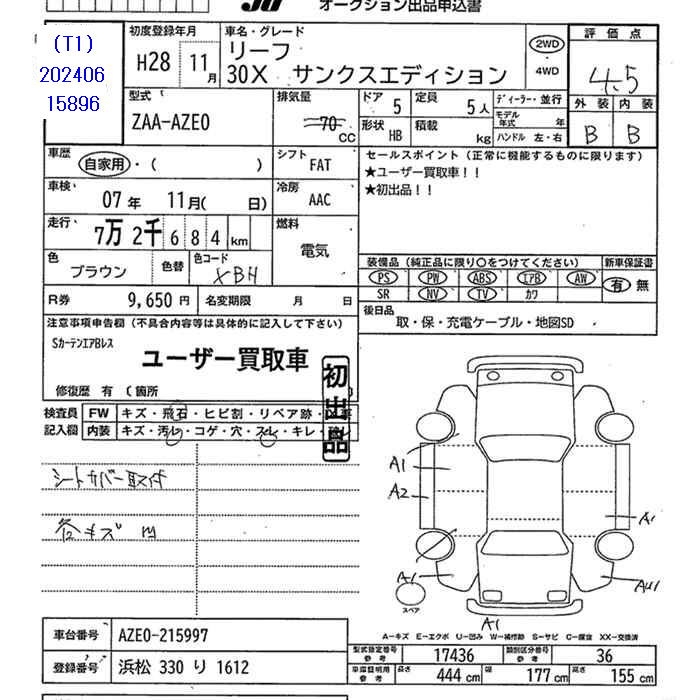 オークション出品申込書
(T1)
202406
15896
初度登録年月
H28 11月
車名・グレード
リーフ
30X サンクスエディション
2WD
・
4WD
評価点
4.5
外装 内装
B B
型式
ZAA-AZE0
排気量
70 CC
ドア 5
定員 5人
ディーラー・並行
モデル年式 年
形状 HB
積載 kg
ハンドル 左・右
車歴
自家用・( )
シフト
FAT
セールスポイント(正常に機能するものに限ります)
★ユーザー買取車!!
★初出品!!
車検
07年 11月( 日)
冷房
AAC
走行
7万2千684km
燃料
電気
色
ブラウン
色替
色コード
XBH
装備品(純正品に限り○をつけてください)
新車保証書
PS PW ABS エアB AW
有 無
SR NV TV カワ
R券 9,650円
名変期限 月 日
後日品
取・保・充電ケーブル・地図SD
注意事項申告欄(不具合内容等は具体的に記入して下さい)
SカーテンエアBレス
ユーザー買取車
初出品
修復歴 有 (箇所
検査員
記入欄
FW キズ・飛石・ヒビ割・リペア跡・
内装 キズ・汚レ・コゲ・穴・スレ・キレ・
シートカバー取付
各キズ
A1
A2
A1
A1
A1
スペア
A―キズ E―エクボ U―凹み W―補修跡 S―サビ C―腐食 XX―交換済
車台番号 AZE0-215997
登録番号 浜松 330 り 1612
型式指定番号 参考 17436
類別区分番号 参考 36
車庫証明用 参考
長さ 444 cm 幅 177 cm 高さ 155 cm